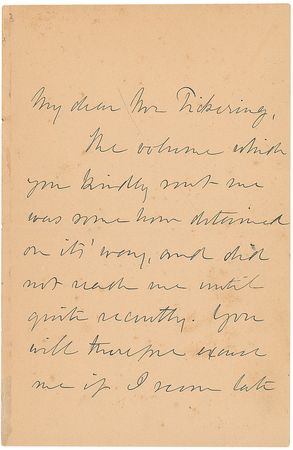 My dear Mr Pickering,
The volume which
you kindly sent me
was some how detained
on its' way, and did
not reach me until
quite recently. You
will therefore excuse
me if I seem late